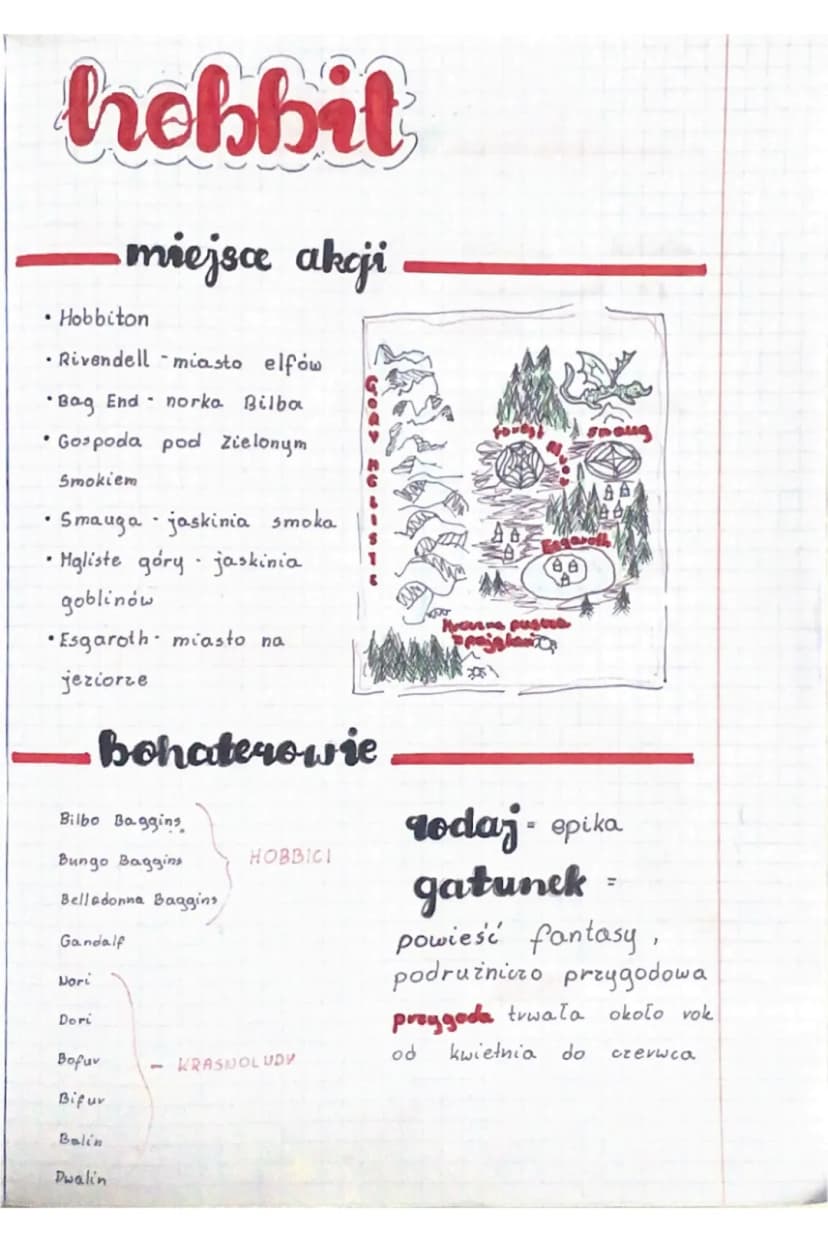 hobbit
miejsce akcji
• Hobbiton
• Rivendell - miasto elfów
• Bag End - norka Bilba
• Gospoda pod Zielonym
Smokiem
• Smauga - jaskinia smoka
• Mgliste góry - jaskinia
goblinów
• Esgaroth - miasto na
jeziorze
GÓRY MGLISTE
Smaug
Esgaroth
Bohaterowie
Bilbo Baggins
Bungo Baggins
Belladonna Baggins
HOBBICI
Gandalf
Nori
Dori
Bofur
Bifur
Balin
Dwalin
- KRASNOLUDY
rodaj - epika
gatunek =
powieść fantasy,
podrużniczo przygodowa
przygoda trwała około rok
od kwietnia do czerwca